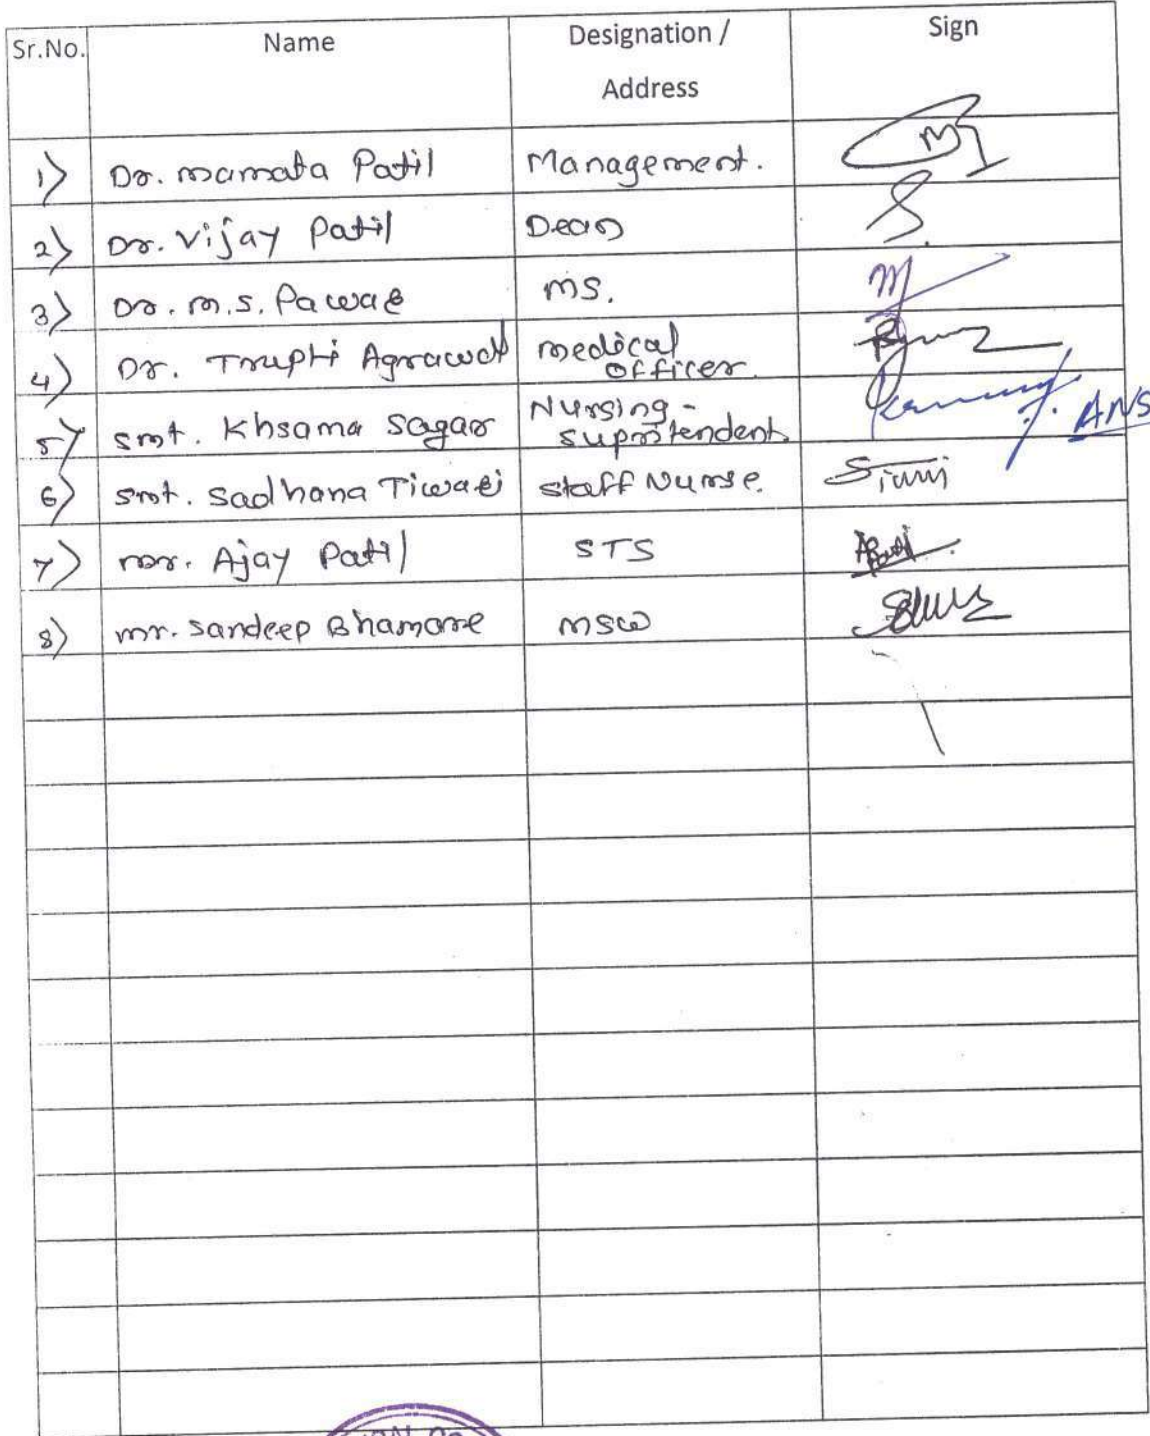 Sr.No. Name Designation / Sign
Address
1) Dr. mamata Patil Management.
2) Dr. Vijay Patil Dean
3) Dr. m.s. Pawar ms.
4) Dr. Trupti Agrawal medical
officer.
5) smt. Khsama Sagar Nursing -
suprntendent ANS
6) smt. Sadhana Tiwari staff Nurse.
7) mr. Ajay Patil STS
8) mr. Sandeep Bhamare msw